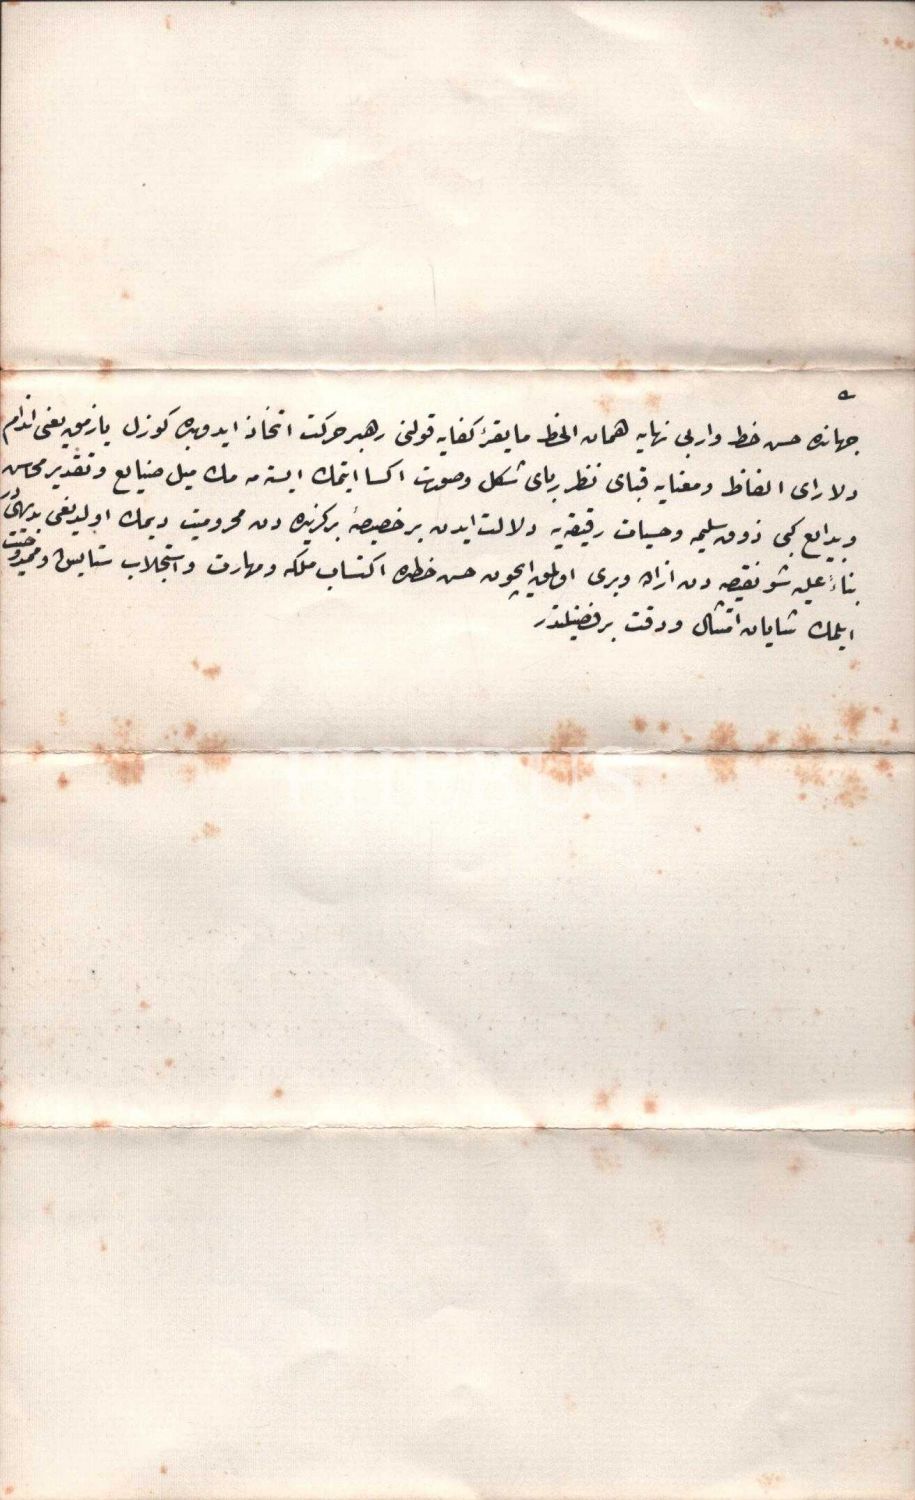 جهانده حسن خطه وار بی نهایه همان الخط ما یقرأ کفایه قولنی رهبر حرکت اتخاذ ایدوبده کوزل یازمق یعنی اندام
دلارای الفاظ و معنایه قبای نظر ربای شکل و صورت اکسا ایتمك ایسته مه مك میل صنایع و تقدیر محاسن
و بدایع کبی ذوق سلیمه و حسیات رقیقه یه دلالت ایدن بر خصیصهٔ برکزیده دن محرومیت دیمك اولدیغی بدیهیدر
بناءً علیه شو نقیصه دن ازاده و بری اولمق ایچون حسن خطده اکتساب ملکه و مهارت و استجلاب ستایش و ممدوحیت
ایلمك شایان امتثال و دقت بر فضیلتدر